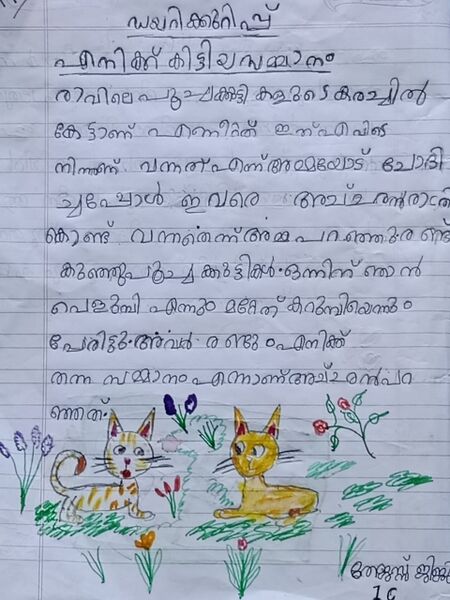 ഡയറിക്കുറിപ്പ്
എനിക്ക് കിട്ടിയ സമ്മാനം
രാവിലെ പൂച്ചക്കുട്ടികളുടെ കരച്ചിൽ
കേട്ടാണ് എണീറ്റത് ഇത് എവിടെ
നിന്നാണ് വന്നത് എന്ന് അമ്മയോട് ചോദി
ച്ചപ്പോൾ ഇവരെ അച്ഛൻ രാത്രി
കൊണ്ട് വന്നതെന്ന് അമ്മ പറഞ്ഞു രണ്ട്
കുഞ്ഞു പൂച്ചക്കുട്ടികൾ. ഒന്നിന് ഞാൻ
എന്നും മറ്റേത് കുറുമ്പിയെന്നും
പേരിട്ടു. അവർ രണ്ടും എനിക്ക്
തന്ന സമ്മാനം എന്നാണ് അച്ഛൻ പറ
ഞ്ഞത്.
ജിജു
1 C